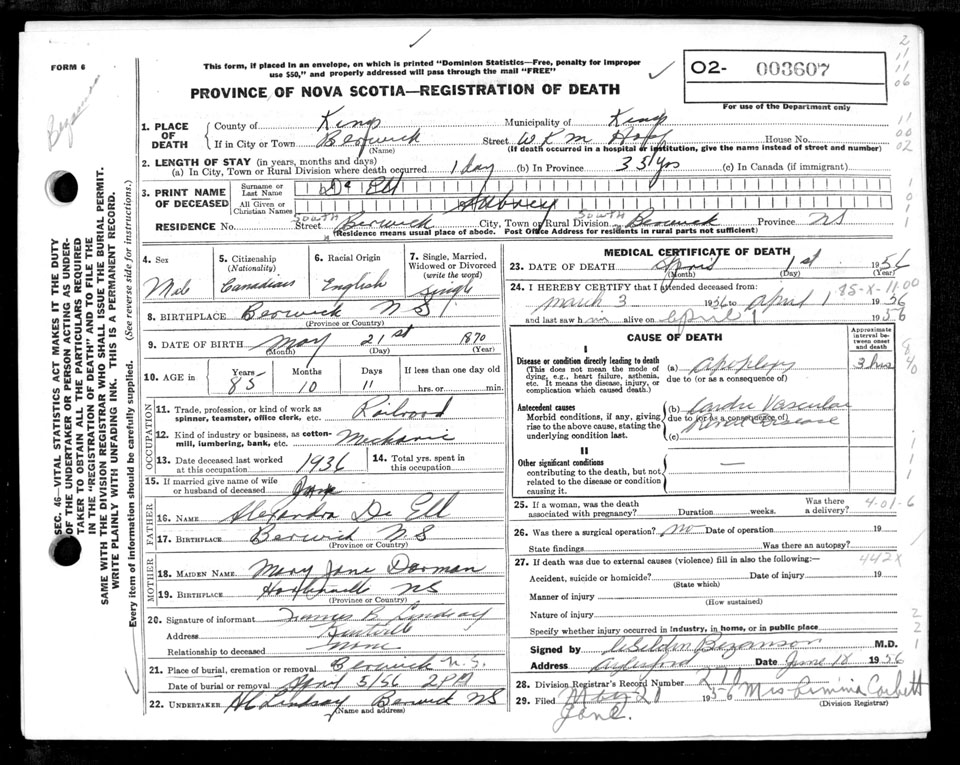 FORM 6
This form, if placed in an envelope, on which is printed "Dominion Statistics—Free, penalty for improper
use $50," and properly addressed will pass through the mail "FREE"
O2- 003607
PROVINCE OF NOVA SCOTIA—REGISTRATION OF DEATH
For use of the Department only
1. PLACE OF DEATH
County of Kings Municipality of Kings
If in City or Town Berwick Street W K M Hosp House No.
(Name) (If death occurred in a hospital or institution, give the name instead of street and number)
2. LENGTH OF STAY (in years, months and days)
(a) In City, Town or Rural Division where death occurred 1 day (b) In Province 35 yrs (c) In Canada (if immigrant)
3. PRINT NAME OF DECEASED
Surname or Last Name De Ell
All Given or Christian Names
RESIDENCE No. Street South Berwick City, Town or Rural Division South Berwick Province NS
(Residence means usual place of abode. Post Office Address for residents in rural parts not sufficient)
4. Sex
5. Citizenship (Nationality) Canadian
6. Racial Origin English
7. Single, Married, Widowed or Divorced (write the word) Single
8. BIRTHPLACE Berwick NS
(Province or Country)
9. DATE OF BIRTH May 21st 1870
(Month) (Day) (Year)
10. AGE in Years 85 Months 10 Days 11 If less than one day old
hrs. or min.
OCCUPATION
11. Trade, profession, or kind of work as spinner, teamster, office clerk, etc. Railroad
12. Kind of industry or business, as cotton-mill, lumbering, bank, etc. Mechanic
13. Date deceased last worked at this occupation 1936
14. Total yrs. spent in this occupation
15. If married give name of wife or husband of deceased
FATHER
16. NAME De Ell
17. BIRTHPLACE Berwick NS
(Province or Country)
MOTHER
18. MAIDEN NAME Mary Jane Dorman
19. BIRTHPLACE NS
(Province or Country)
20. Signature of informant B Lindsay
Address Kentville
Relationship to deceased None
21. Place of burial, cremation or removal Berwick N.S.
Date of burial or removal April 5/56 2 PM
22. UNDERTAKER Lindsay Berwick NS
(Name and address)
MEDICAL CERTIFICATE OF DEATH
23. DATE OF DEATH April 1st 1956
(Month) (Day) (Year)
24. I HEREBY CERTIFY that I attended deceased from: 85-X-11.00
March 3 1956 to April 1 1956
and last saw him alive on April 1 1956
CAUSE OF DEATH
Approximate interval between onset and death
I
Disease or condition directly leading to death
(This does not mean the mode of dying, e.g., heart failure, asthenia, etc. It means the disease, injury, or complication which caused death.)
(a) Apoplexy 3 hrs
due to (or as a consequence of)
Antecedent causes
Morbid conditions, if any, giving rise to the above cause, stating the underlying condition last.
(b) Cardio Vascular
due to (or as a consequence of)
(c) Disease
II
Other significant conditions
contributing to the death, but not related to the disease or condition causing it.
—
25. If a woman, was the death associated with pregnancy? Duration weeks. Was there a delivery? 4-01-6
26. Was there a surgical operation? no Date of operation 19
State findings Was there an autopsy?
27. If death was due to external causes (violence) fill in also the following:— 442X
Accident, suicide or homicide? Date of injury 19
(State which)
Manner of injury
(How sustained)
Nature of injury
Specify whether injury occurred in industry, in home, or in public place
Signed by Weldon Bezanson M.D.
Address Aylesford Date June 18 1956
28. Division Registrar's Record Number 270
29. Filed May 20 1956 Mrs Corbett
(Division Registrar)
June.
SEC. 46—VITAL STATISTICS ACT MAKES IT THE DUTY
OF THE UNDERTAKER OR PERSON ACTING AS UNDER-
TAKER TO OBTAIN ALL THE PARTICULARS REQUIRED
IN THE "REGISTRATION OF DEATH" AND TO FILE THE
SAME WITH THE DIVISION REGISTRAR WHO SHALL ISSUE THE BURIAL PERMIT.
WRITE PLAINLY WITH UNFADING INK. THIS IS A PERMANENT RECORD.
Every item of information should be carefully supplied. (See reverse side for instructions.)
Bezanson